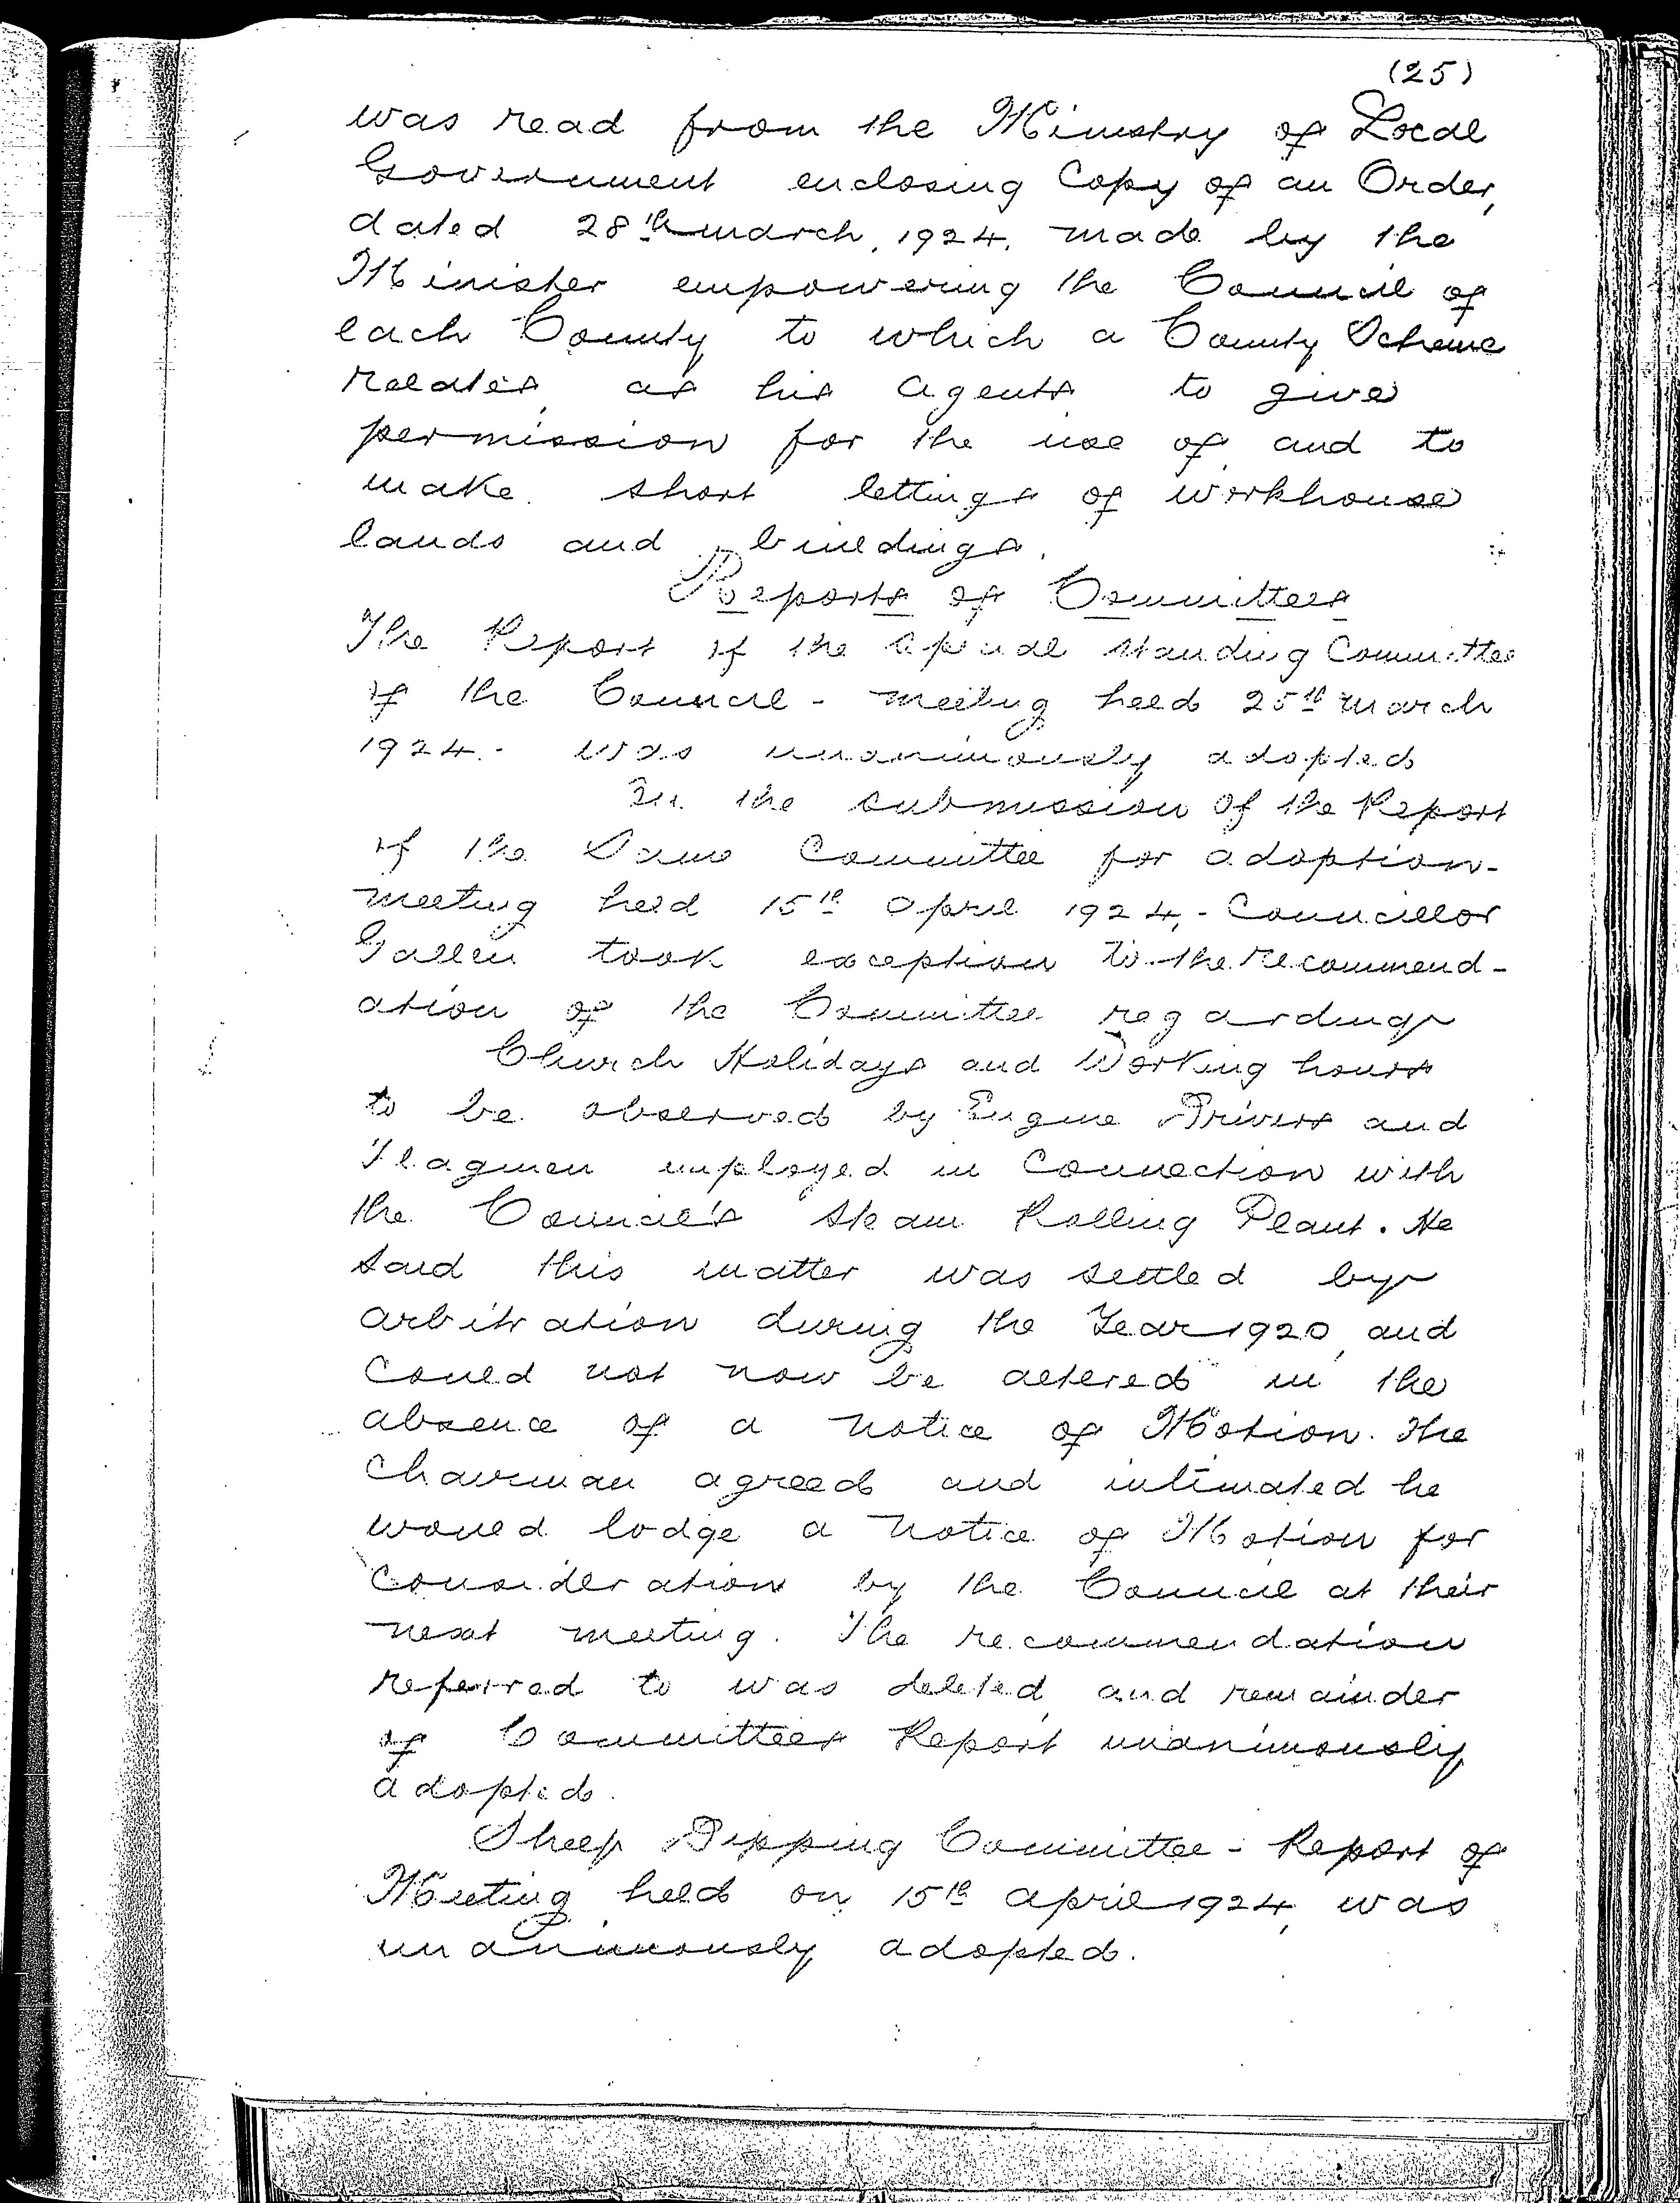 (25)
was read from the Ministry of Local
Government enclosing Copy of an Order,
dated 28th march, 1924, made by the
Minister empowering the Council of
each County to which a County Scheme
relates, as his agents, to give
permission for the use of, and to
make short lettings of workhouse
lands and buildings.
Reports of Committees
The Report of the special standing Committee
of the Council - meeting held 25th march
1924 - was unanimously adopted
In the submission of the Report
of the Same Committee for adoption -
meeting held 15th april 1924, - Councillor
Gallen took exception to the recommend-
ation of the Committee regarding
Church Holidays and Working hours
to be observed by Engine Drivers and
Flagmen employed in Connection with
the Council's steam Rolling Plant. He
said this matter was settled by
arbitration during the Year 1920, and
Could not now be altered in the
absence of a notice of Motion. The
Chairman agreed and intimated he
would lodge a notice of Motion for
consideration by the Council at their
next meeting. The recommendation
referred to was deleted, and remainder
of Committees Report unanimously
adopted.
Sheep Dipping Committee - Report of
Meeting held on 15th april 1924, was
unanimously adopted.